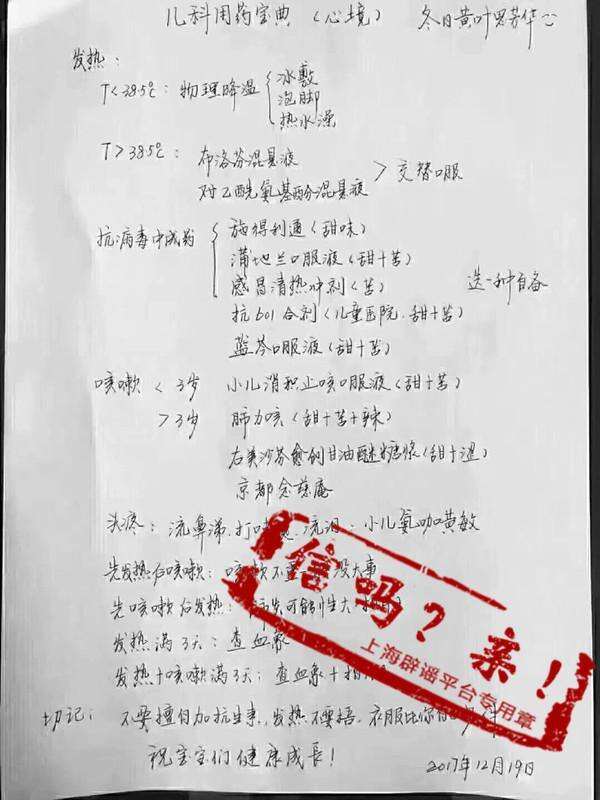 儿科用药宝典（心境） 冬日黄叶思芳华
发热：
T<38.5℃：物理降温 冰敷
泡脚
热水澡
T>38.5℃：布洛芬混悬液
对乙酰氨基酚混悬液 > 交替口服
抗病毒中成药 施得利通（甜味）
蒲地兰口服液（甜+苦）
感冒清热冲剂（苦） 选一种自备
抗601合剂（儿童医院，甜+苦）
蓝芩口服液（甜+苦）
咳嗽 <3岁 小儿消积止咳口服液（甜+苦）
>3岁 肺力咳（甜+苦+辣）
右美沙芬愈创甘油醚糖浆（甜+涩）
京都念慈庵
头疼：流鼻涕，打喷 流泪：小儿氨咖黄敏
先发热后咳嗽：咳嗽不 没大事
先咳嗽后发热： 可能性大
发热满3天：查血象
发热+咳嗽满3天：查血象+
切记：不要擅自加抗生素，发热不要捂，衣服比你
祝宝宝们健康成長！
2017年12月19日
信吗？亲！
上海辟谣平台专用章